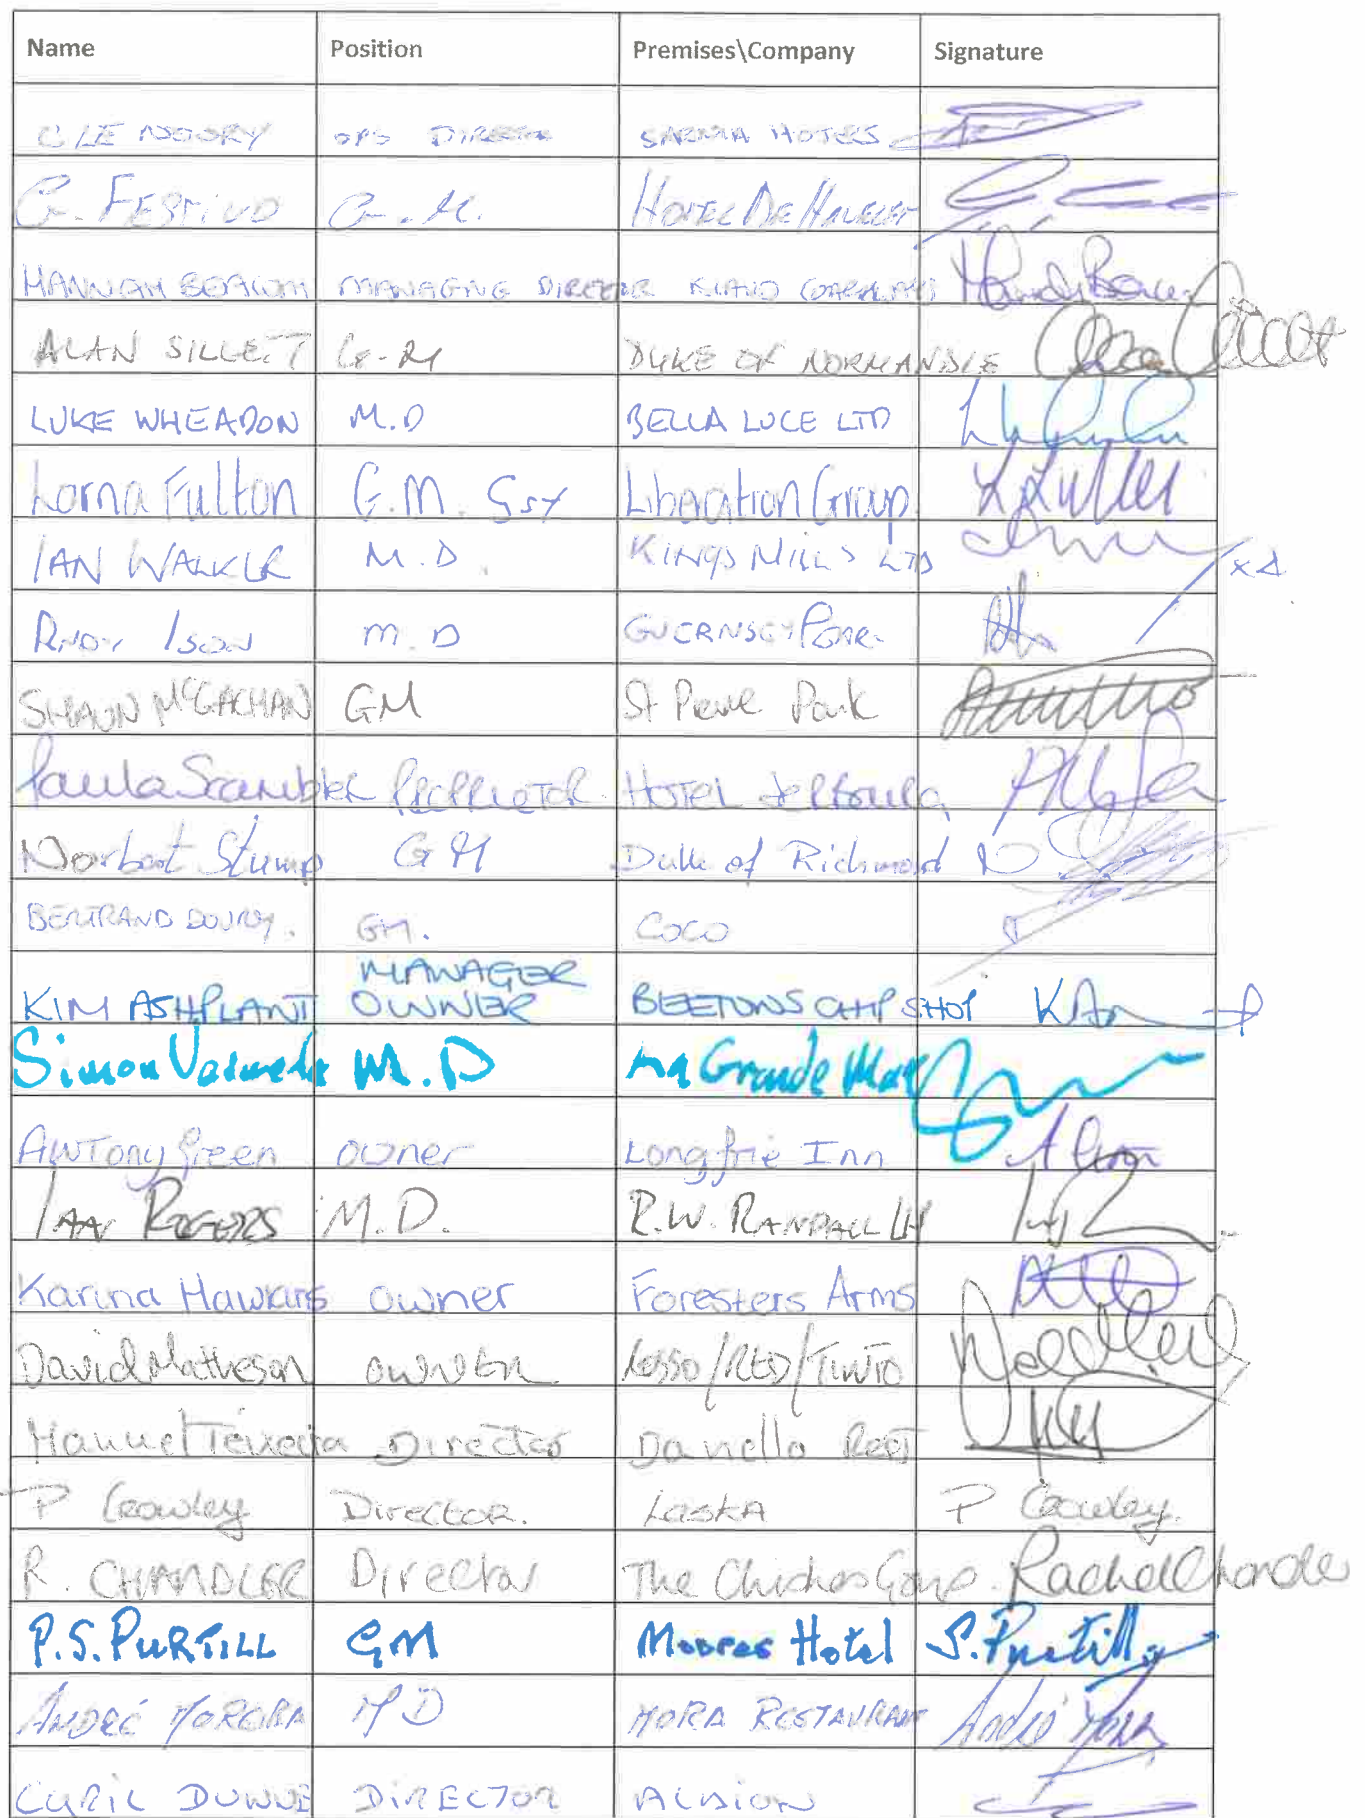 Name Position Premises\Company Signature
C LE NOURY OPS DIRECTOR SARNIA HOTELS
G. FESTIVO G.M. HOTEL DE HAVELET
HANNAH BEACOM MANAGING DIRECTOR ISLAND COACHWAYS
ALAN SILLETT G.M DUKE OF NORMANDIE
LUKE WHEADON M.D BELLA LUCE LTD
Lorna Fulton G.M. Gsy Liberation Group.
IAN WALKER M.D. KINGS MILLS LTD x4
ISON M.D
SHAUN MCGACHAN GM St Pierre Park
Paula Scambler PROPRIETOR HOTEL Jerbourg
Norbert Stump GM Duke of Richmond
BERTRAND DOURY. GM. COCO
MANAGER
KIM ASHPLANT OWNER BEETONS CHIP SHOP
Simon M.D La Grande Mare
ANTony Green owner Longfrie Inn
IAN ROGERS M.D. R.W. RANDALL Ltd
Karina Hawkins owner Foresters Arms
David Matheson OWNER /RED/TINTO
Manuel Teixeira Director Da Nello Rest
P Crowley Director. LaskA P Crowley.
R. CHANDLER Director The Group. Rachel Chandler
P.S. PURTILL GM Moores Hotel S. Purtill
ANDRÉ MORORA MD MORA RESTAURANT André Mora
CYRIL DUNNE DIRECTOR ALBION